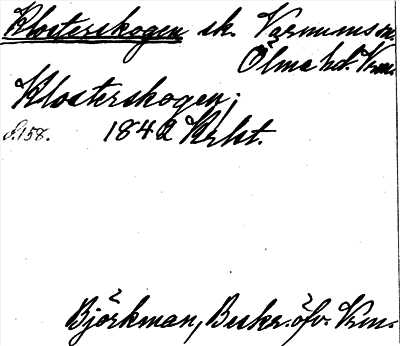 Klosterskogen sk. Varnums sn.
Ölme hd. Vrm.
Klosterskogen;
S. 158. 1842 Krlst.
Björkman, Beskr. öfv. Vrm.